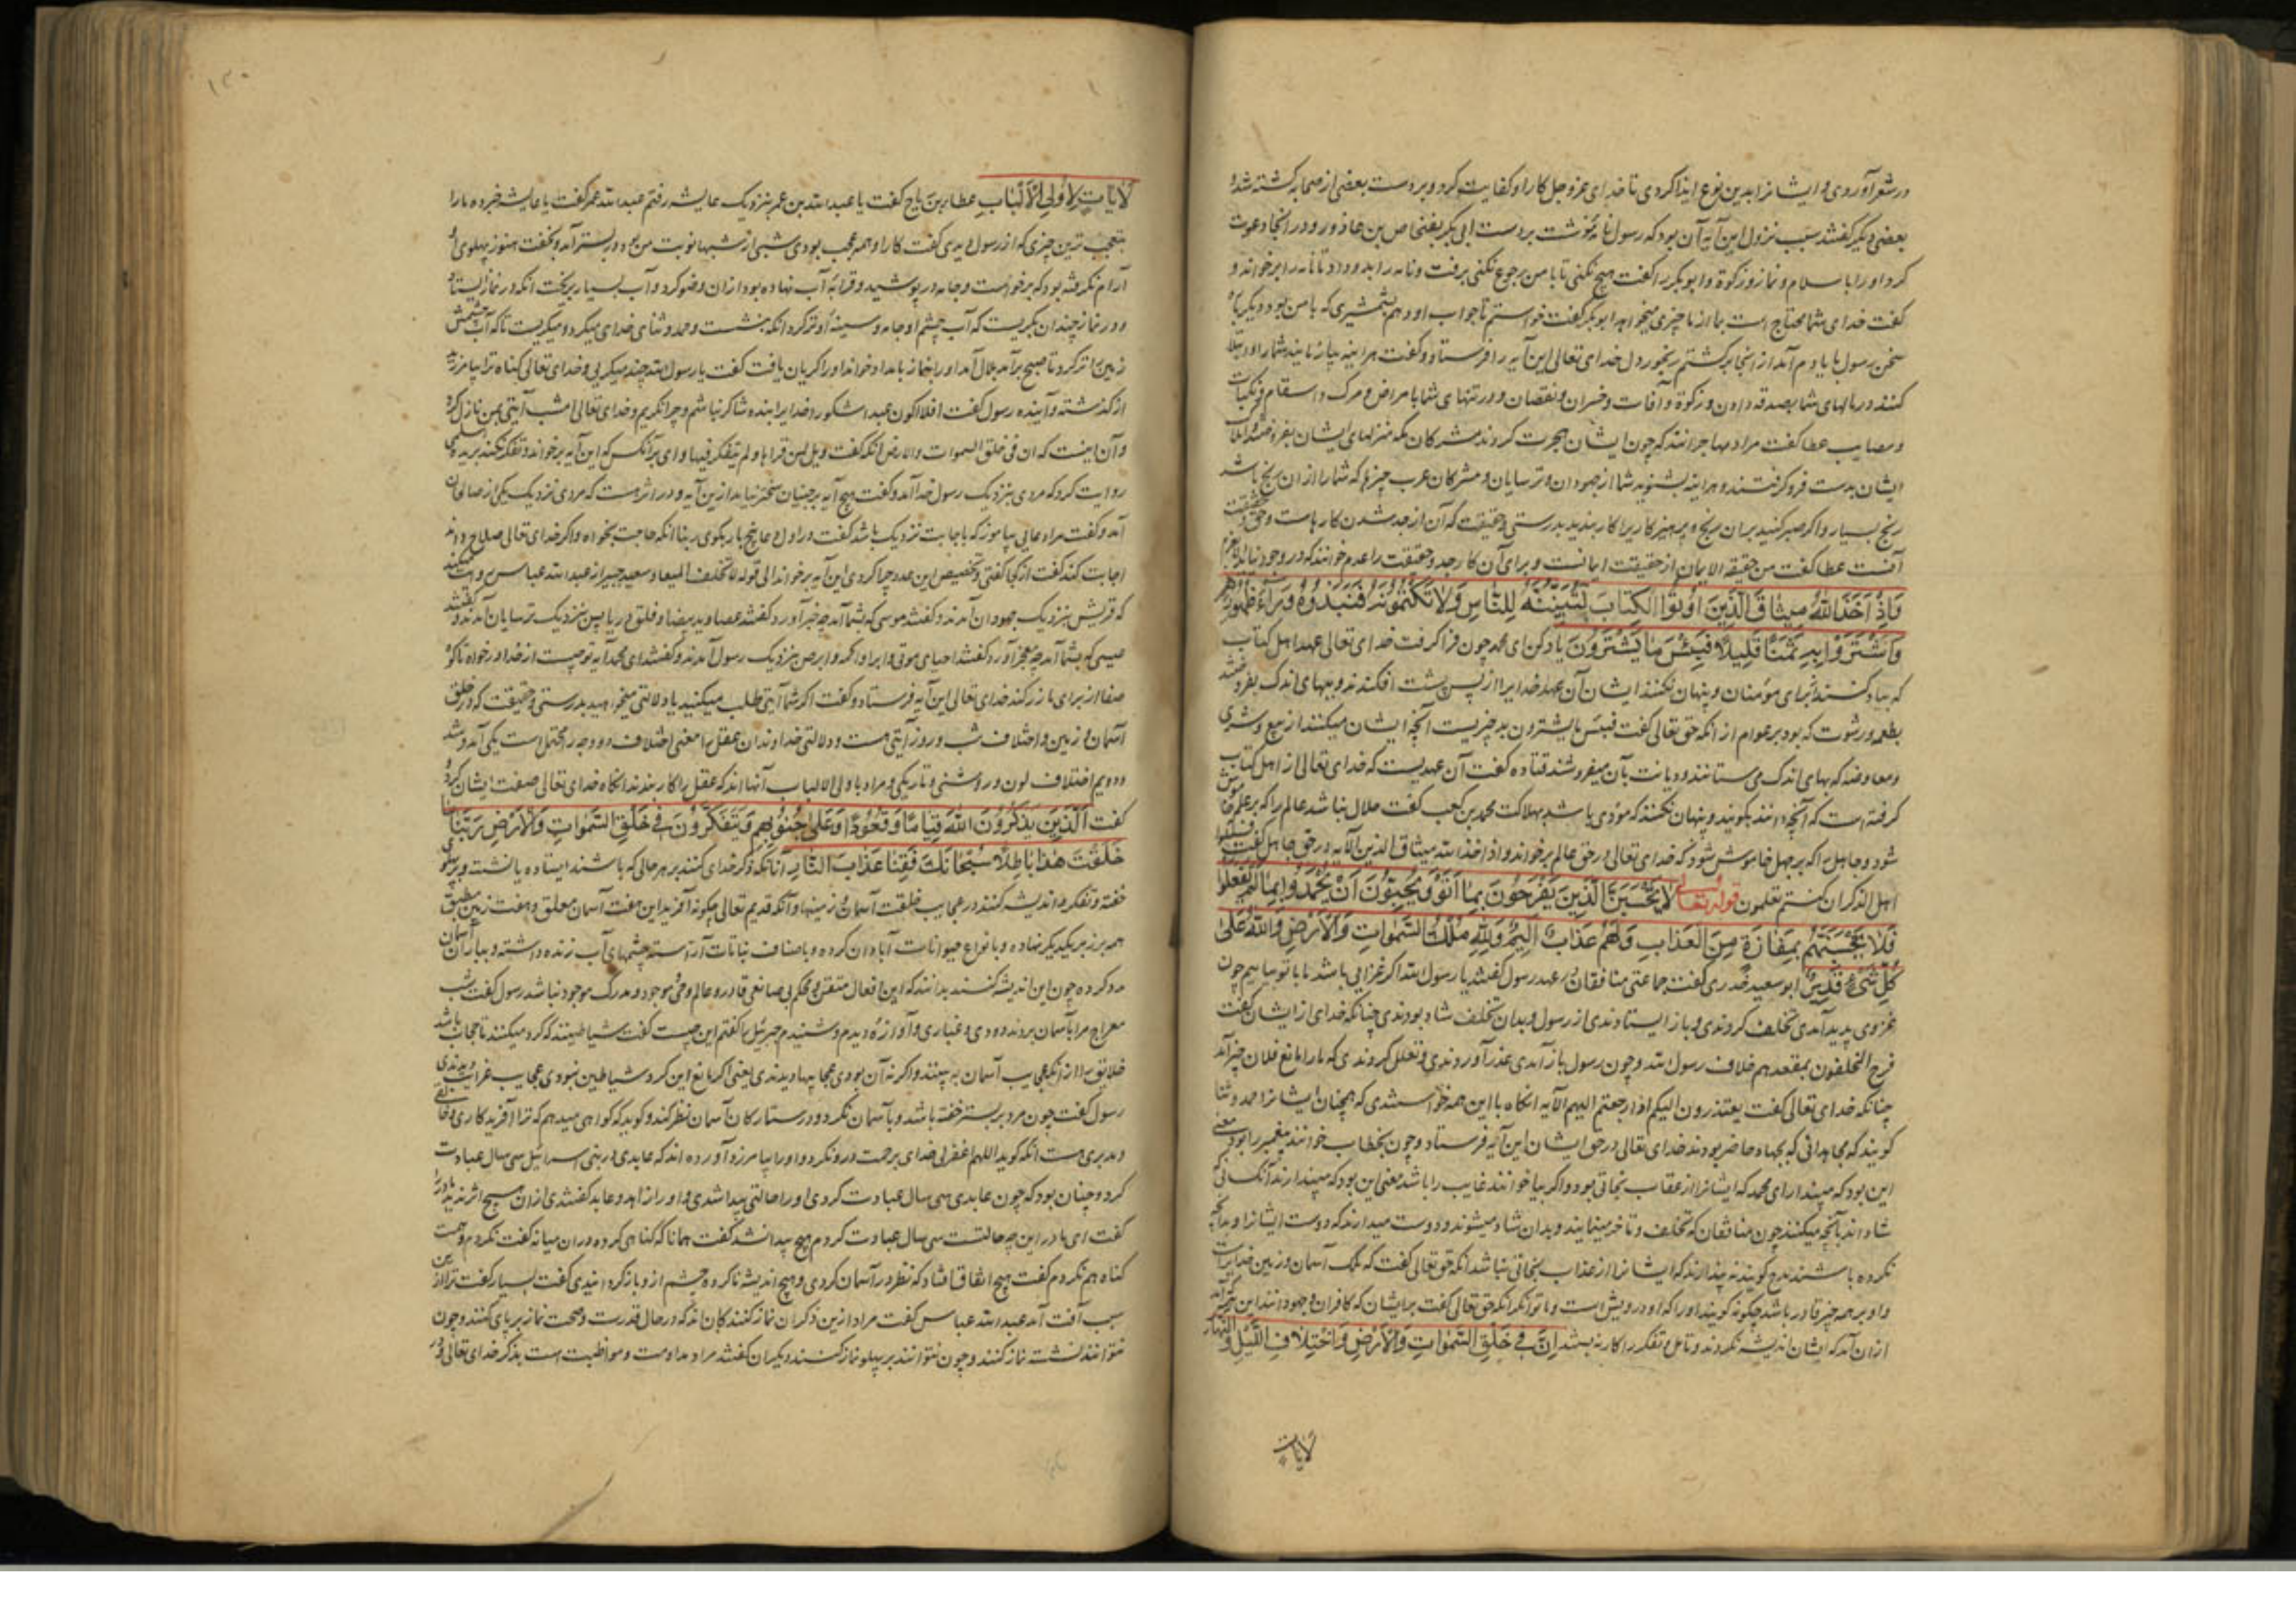 در شعر آوردی و ایشانرا بدین نوع ایذا کردی تا خدای عز و جل کار او کفایت کرد و بر دست بعضی از صحابه کشته شد و
بعضی دیگر کفتند سبب نزول این آیه آن بود که رسول نامه نوشت بر دست ابی بکر بفنحاص بن عازورا و در انجا دعوت
کرد او را باسلام و نماز و زکوة و ابو بکر را کفت هیچ نکنی تا با من رجوع نکنی برفت و نامه را بدو داد تا نامه را بر خواند و
کفت خدای شما محتاج است بما از ما چیزی میخواهد ابو بکر کفت خواستم تا جواب او دهم بشمشیری که با من بود دیگر باره
سخن رسول با یادم آمد از انجا بر کشتم رنجور دل خدای تعالی این آیه را فرستاد و کفت هر اینه بیازمایند شما را و ابتلا
کنند در مالهای شما بصدقه دادن و زکوة و آفات و خسران و نقصان و در تنهای شما بامراض و مرک و اسقام و نکبات
و مصایب عطا کفت مراد مهاجرانند که چون ایشان هجرت کردند مشرکان مکه منزلهای ایشان بفروختند و املاک
ایشان بدست فرو کرفتند و هر اینه بشنوید شما از جهودان و ترسایان و مشرکان عرب چیزها که شما را از ان رنج باشد
رنج بسیار و اکر صبر کنید بران رنج و پرهیزکاریرا کار بندید بدرستی و حقیقت که آن از جد شدن کارهاست و حق و حقیقت
آنست عطا کفت من حقیقة الایمان از حقیقت ایمانست و برای آن کار جد و حقیقت را عزم خوانند که در وجود نیاید الا بعزم
وَاِذْ اَخَذَ اللّٰهُ مِيثَاقَ الَّذِينَ اُوتُوا الْكِتَابَ لَتُبَيِّنُنَّهُ لِلنَّاسِ وَلَا تَكْتُمُونَهُ فَنَبَذُوهُ وَرَاءَ ظُهُورِهِمْ
وَاشْتَرَوْا بِهِ ثَمَنًا قَلِيلًا فَبِئْسَ مَا يَشْتَرُونَ یاد کن ای محمد چون فرا کرفت خدای تعالی عهد اهل کتاب
که بیان کنند برای مؤمنان و پنهان نکنند ایشان آن عهد خدایرا از پس پشت افکندند و ببهای اندک بفروختند
بطعمه و رشوت که بود بر عوام از انکه حق تعالی کفت فبئس ما یشترون بد چیزیست آنچه ایشان میکنند از بیع و شری
و معاوضه که بهای اندک می ستانند و دیانت بآن میفروشند قتاده کفت آن عهدیست که خدای تعالی از اهل کتاب
کرفته است که آنچه دانند بکویند و پنهان نکنند که مؤدی باشد بهلاکت محمد بن کعب کفت حلال نباشد عالم را که بر علم خاموش
شود و جاهل را که بر جهل خاموش شود که خدای تعالی در حق عالم بر خواند و اذ اخذ الله میثاق الذین الآیه در حق جاهل کفت فسئلوا
اهل الذکر ان کنتم لا تعلمون قوله تعالی لَا يَحْسَبَنَّ الَّذِينَ يَفْرَحُونَ بِمَا اَتَوْا وَيُحِبُّونَ اَنْ يُحْمَدُوا بِمَا لَمْ يَفْعَلُوا
فَلَا يَحْسَبَنَّهُمْ بِمَفَازَةٍ مِنَ الْعَذَابِ وَلَهُمْ عَذَابٌ اَلِيمٌ وَلِلّٰهِ مُلْكُ السَّمٰوَاتِ وَالْاَرْضِ وَاللّٰهُ عَلَى
كُلِّ شَيْءٍ قَدِيرٌ ابو سعید خدری کفت جماعتی منافقان در عهد رسول کفتند یا رسول الله اکر غزایی باشد ما با تو بیاییم چون
غزوی پدید آمدی تخلف کردندی و باز ایستادندی از رسول و بدان تخلف شاد بودندی چنانکه خدای از ایشان کفت
فرح المخلفون بمقعدهم خلاف رسول الله و چون رسول باز آمدی عذر آوردندی و تعلل کردندی که ما را مانع فلان چیز آمد
چنانکه خدای تعالی کفت یعتذرون الیکم اذا رجعتم الیهم الآیه انکاه با این همه خواستندی که همچنان ایشانرا حمد و ثنا
کویند که مجاهدانی که بجهاد حاضر بودند خدای تعالی در حق ایشان این آیه فرستاد و چون بخطاب خوانند پیغمبر را بود معنی
این بود که مپندار ای محمد که ایشانرا از عقاب نجاتی بود و اکر بیا خوانند غایب را باشد معنی این بود که مپندارند آنکسانی که
شادند بآنچه میکنند چون منافقان که تخلف و تاخر مینمایند و بدان شاد میشوند و دوست میدارند که دوست ایشانرا و بدانچه
نکرده باشند مدح کویند نه پندارند که ایشانرا از عذاب نجاتی باشد انکه حق تعالی کفت که ملک آسمان و زمین خدایراست
و او بر همه چیز قادر باشد چکونه کویند او را که او درویش است و ما توانکر انکه حق تعالی کفت برایشان که کافران و جهودانند این
از ان آمد که ایشان اندیشه نکردند و تامل و تفکر را کار نه بستند اِنَّ فِي خَلْقِ السَّمٰوَاتِ وَالْاَرْضِ وَاخْتِلَافِ اللَّيْلِ وَالنَّهَارِ
لآیات
۱۳۰
لَآيَاتٍ لِاُولِي الْاَلْبَابِ عطاء بن رباح کفت با عبد الله بن عمر بنزدیک عایشه رفتم عبد الله عمر کفت یا عایشه خبر ده ما را
بتعجب ترین چیزی که از رسول دیدی کفت کار او همه عجب بودی شبی از شبها نوبت من بود در بستر آمد و بخفت هنوز پهلوی او
آرام نکرفته بود که برخواست و جامه در پوشید و قرابه آب نهاده بود از ان وضو کرد و آب بسیار بریخت انکه در نماز ایستاد
و در نماز چندان بکریست که آب چشم او جامه و سینه او تر کرد انکه بنشست و حمد و ثنای خدای میکرد و میکریست تا که آب چشمش
زمین را تر کرد تا صبح بر آمد بلال آمد او را بنماز بامداد خواند او را کریان یافت کفت یا رسول الله چند میکریی و خدای تعالی کناه ترا بیامرزید
از کذشته و آینده رسول کفت افلا اکون عبدا شکورا خدایرا بنده شاکر نباشم و چرا نکریم و خدای تعالی امشب آیتی بمن نازل کرد
و آن اینست که ان فی خلق السموات والارض انکه کفت ویل لمن قراها ولم یتفکر فیها وای بر آنکس که این آیه بر خواند و تفکر نکند بریده اسلمی
روایت کرد که مردی بنزدیک رسول خدا آمد و کفت هیچ آیه بر جنیان سختر نیاید از این آیه و در اثر هست که مردی نزدیک یکی از صالحان
آمد و کفت مرا دعایی بیاموز که باجابت نزدیک باشد کفت در اول دعا پنج بار بکوی ربنا انکه حاجت بخواه و اکر خدای تعالی صلاح داند
اجابت کند کفت از کجا کفتی و تخصیص این عدد چرا کردی این آیه بر خواند الی قوله لا تخلف المیعاد و سعید جبیر از عبد الله عباس روایت میکند
که قریش بنزدیک جهودان آمدند و کفتند موسی که بشما آمد چه خبر آورد کفتند عصا و ید بیضا و فلق دریا پس بنزدیک ترسایان آمدند و کفتند
عیسی که بشما آمد چه معجز آورد کفتند احیای موتی و ابراء اکمه و ابرص بنزدیک رسول آمدند و کفتند ای محمد آیه تو چیست از خدا در خواه تا کوه
صفا از برای ما زر کند خدای تعالی این آیه فرستاد و کفت اکر شما آیتی طلب میکنید یا دلالتی میخواهید بدرستی و حقیقت که در خلق
آسمان و زمین و اختلاف شب و روز آیتی هست و دلالتی خداوندان عقل را معنی اختلاف دو وجه را محتمل است یکی آمد و شد
و دویم اختلاف لون و روشنی و تاریکی و مراد باولی الالباب آنها اند که عقل را کار بندند انکاه خدای تعالی صفت ایشان کرد و
کفت اَلَّذِينَ يَذْكُرُونَ اللّٰهَ قِيَامًا وَقُعُودًا وَعَلَى جُنُوبِهِمْ وَيَتَفَكَّرُونَ فِي خَلْقِ السَّمٰوَاتِ وَالْاَرْضِ رَبَّنَا مَا
خَلَقْتَ هٰذَا بَاطِلًا سُبْحَانَكَ فَقِنَا عَذَابَ النَّارِ آنانکه ذکر خدای کنند بر هر حالی که باشند ایستاده یا نشسته و بر پهلو
خفته و تفکر و اندیشه کنند در عجایب خلقت آسمان و زمینها و آنکه قدیم تعالی چکونه آفرید این هفت آسمان معلق و هفت زمین مطبق
همه بر زبر یکدیکر نهاده و بانواع حیوانات آبادان کرده و باصناف نباتات آراسته چشمهای آب زنده داشته و بباران آسمان
مدد کرده چون این اندیشه کنند بدانند که این افعال متقن و محکم بی صانعی قادر و عالم و حی و موجود و مدرک موجود نباشد رسول کفت شب
معراج مرا بآسمان بردند دودی و غباری و آوازه دیدم و شنیدم جبرئیل را کفتم این چیست کفت شیاطینند که کرد میکنند تا حجاب باشد
خلایق را از آنکه عجایب آسمان به بینند و اکر نه آن بودی عجایبها دیدندی یعنی اکر مانع این کرد شیاطین نبودی عجایب غرایب دیدندی
رسول کفت چون مرد بر بستر خفته باشد و بآسمان نکرد و در ستارکان آسمان نظر کند و کوید که کواهی میدهم که ترا آفریدکاری و خالقی
و مدبری هست انکه کوید اللهم اغفر لی خدای برحمت درو نکرد و او را بیامرزد آورده اند که عابدی در بنی اسرائیل سی سال عبادت
کرد و چنان بود که چون عابدی سی سال عبادت کردی او را حالتی پیدا شدی و او را زاهد و عابد کفتندی از ان هیچ اثر ندید مادر را
کفت ای مادر این چه حالتست سی سال عبادت کردم هیچ پیدا نشد کفت همانا که کناهی کرده دران میانه کفت نکردم و همت
کناه هم نکردم کفت هیچ اتفاق افتاد که نظر در آسمان کردی و هیچ اندیشه ناکرده چشم از و باز کردانیدی کفت بسیار کفت ترا از این
سبب آفت آمد عبد الله عباس کفت مراد ازین ذکران نماز کنندکان اند که در حال قدرت و صحت نماز بر پای کنند و چون
نتوانند نشسته نماز کنند و چون نتوانند بر پهلو نماز کنند و دیکران کفتند مراد مداومت و مواظبت است بذکر خدای تعالی و در